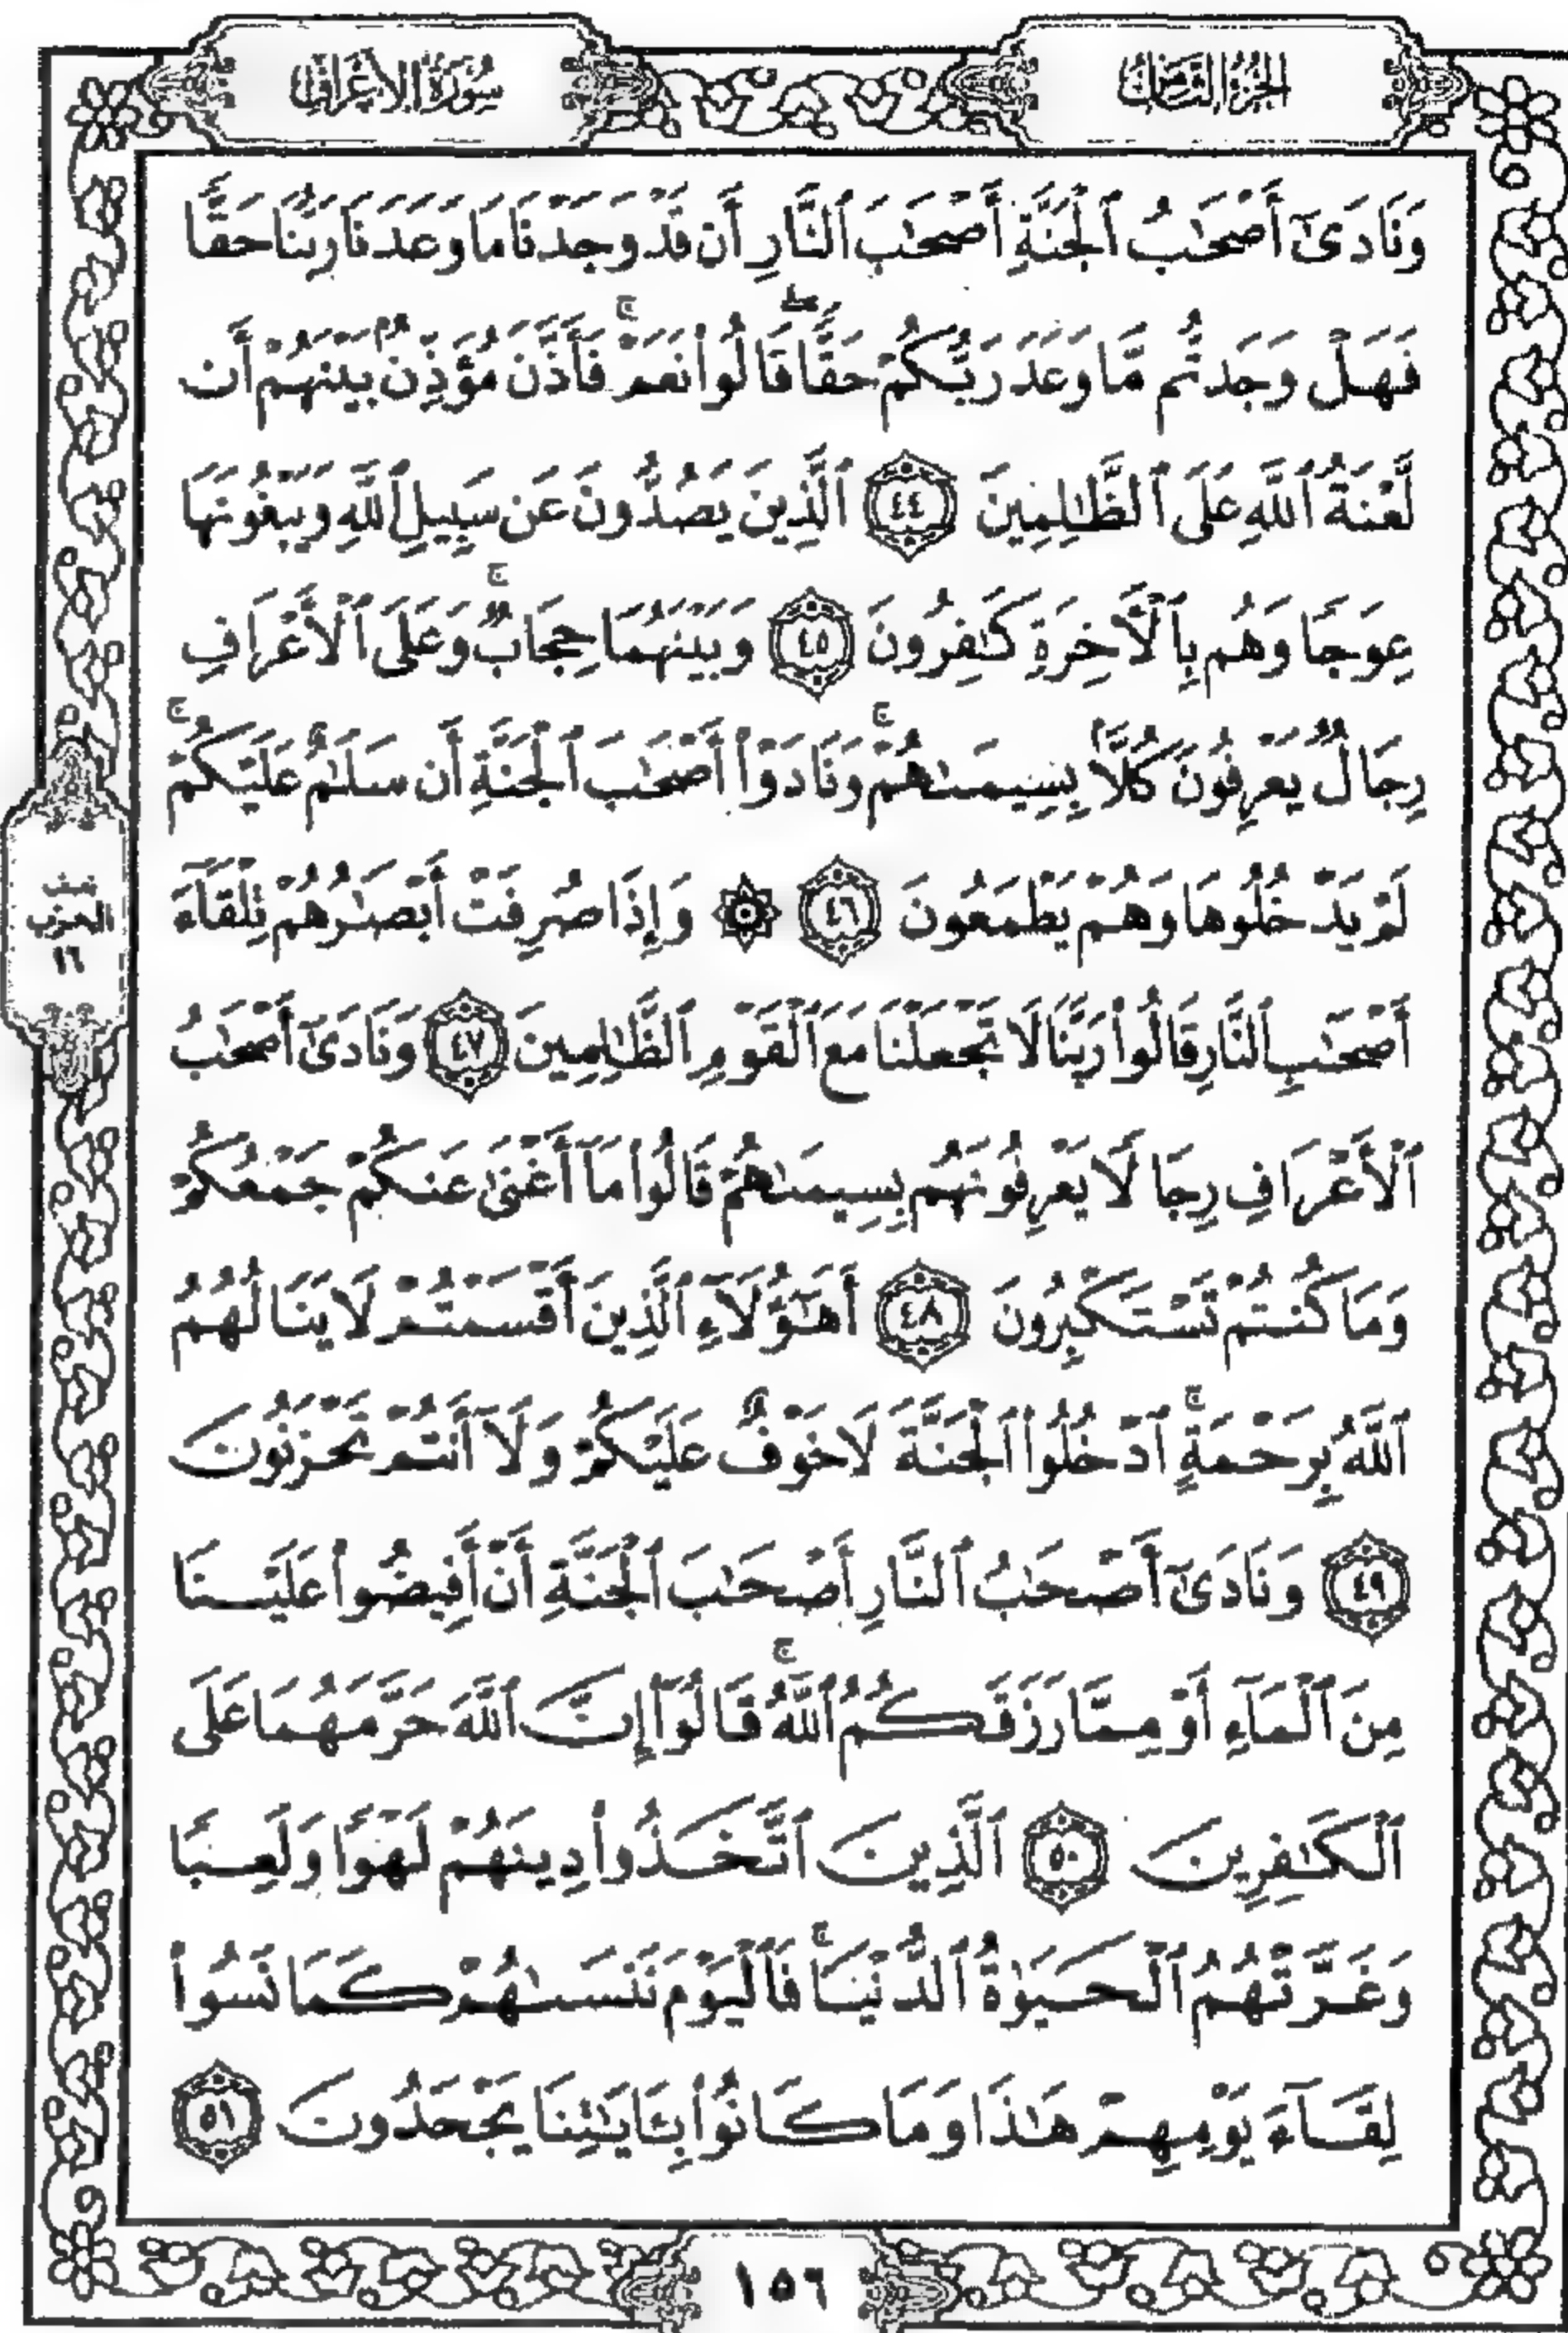 الجزء الثامن
سورة الأعراف
وَنَادَىٰٓ أَصْحَٰبُ ٱلْجَنَّةِ أَصْحَٰبَ ٱلنَّارِ أَن قَدْ وَجَدْنَا مَا وَعَدَنَا رَبُّنَا حَقًّا
فَهَلْ وَجَدتُّم مَّا وَعَدَ رَبُّكُمْ حَقًّا ۖ قَالُوا۟ نَعَمْ ۚ فَأَذَّنَ مُؤَذِّنٌۢ بَيْنَهُمْ أَن
لَّعْنَةُ ٱللَّهِ عَلَى ٱلظَّٰلِمِينَ ٤٤ ٱلَّذِينَ يَصُدُّونَ عَن سَبِيلِ ٱللَّهِ وَيَبْغُونَهَا
عِوَجًا وَهُم بِٱلْأَخِرَةِ كَٰفِرُونَ ٤٥ وَبَيْنَهُمَا حِجَابٌ ۚ وَعَلَى ٱلْأَعْرَافِ
رِجَالٌ يَعْرِفُونَ كُلًّۢا بِسِيمَىٰهُمْ ۚ وَنَادَوْا۟ أَصْحَٰبَ ٱلْجَنَّةِ أَن سَلَٰمٌ عَلَيْكُمْ ۚ
لَمْ يَدْخُلُوهَا وَهُمْ يَطْمَعُونَ ٤٦ ۞ وَإِذَا صُرِفَتْ أَبْصَٰرُهُمْ تِلْقَآءَ
نصف
الحزب
١٦
أَصْحَٰبِ ٱلنَّارِ قَالُوا۟ رَبَّنَا لَا تَجْعَلْنَا مَعَ ٱلْقَوْمِ ٱلظَّٰلِمِينَ ٤٧ وَنَادَىٰٓ أَصْحَٰبُ
ٱلْأَعْرَافِ رِجَالًا يَعْرِفُونَهُم بِسِيمَىٰهُمْ قَالُوا۟ مَآ أَغْنَىٰ عَنكُمْ جَمْعُكُمْ
وَمَا كُنتُمْ تَسْتَكْبِرُونَ ٤٨ أَهَٰٓؤُلَآءِ ٱلَّذِينَ أَقْسَمْتُمْ لَا يَنَالُهُمُ
ٱللَّهُ بِرَحْمَةٍ ۚ ٱدْخُلُوا۟ ٱلْجَنَّةَ لَا خَوْفٌ عَلَيْكُمْ وَلَآ أَنتُمْ تَحْزَنُونَ
٤٩ وَنَادَىٰٓ أَصْحَٰبُ ٱلنَّارِ أَصْحَٰبَ ٱلْجَنَّةِ أَنْ أَفِيضُوا۟ عَلَيْنَا
مِنَ ٱلْمَآءِ أَوْ مِمَّا رَزَقَكُمُ ٱللَّهُ ۚ قَالُوٓا۟ إِنَّ ٱللَّهَ حَرَّمَهُمَا عَلَى
ٱلْكَٰفِرِينَ ٥٠ ٱلَّذِينَ ٱتَّخَذُوا۟ دِينَهُمْ لَهْوًا وَلَعِبًا
وَغَرَّتْهُمُ ٱلْحَيَوٰةُ ٱلدُّنْيَا ۚ فَٱلْيَوْمَ نَنسَىٰهُمْ كَمَا نَسُوا۟
لِقَآءَ يَوْمِهِمْ هَٰذَا وَمَا كَانُوا۟ بِـَٔايَٰتِنَا يَجْحَدُونَ ٥١
١٥٦